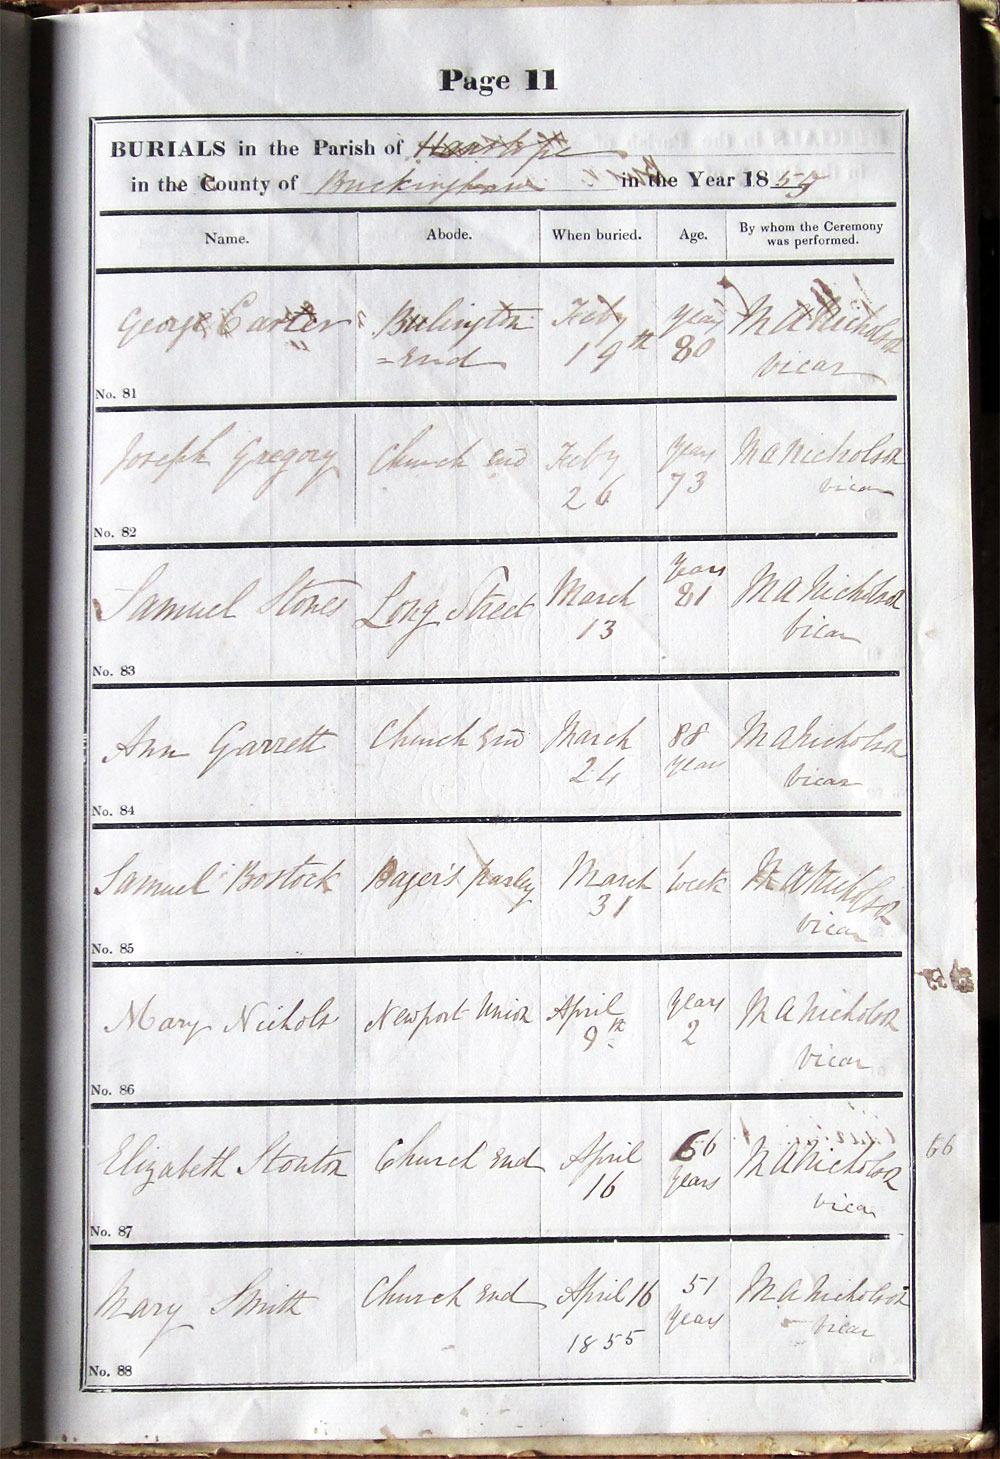 Page 11
BURIALS in the Parish of Hanslope
in the County of Buckingham in the Year 1855
Name. Abode. When buried. Age. By whom the Ceremony was performed.
George Carter Bulington Feby Years M A Nicholson
=End 19th 80 Vicar
No. 81
Joseph Gregory Church End Feby Years M A Nicholson
26 73 vicar
No. 82
Samuel Stones Long Street March Years M A Nicholson
13 81 vicar
No. 83
Ann Garrett Church End March 88 M A Nicholson
24 years vicar
No. 84
Samuel Bostock March 1 M A Nicholson
31 week vicar
No. 85
Mary Nichols Newport Union April Years M A Nicholson
9th 2 vicar
No. 86
Elizabeth Stonton Church End April 66 M A Nicholson 66
16 Years vicar
No. 87
Mary Smith Church End April 16 51 M A Nicholson
1855 Years vicar
No. 88